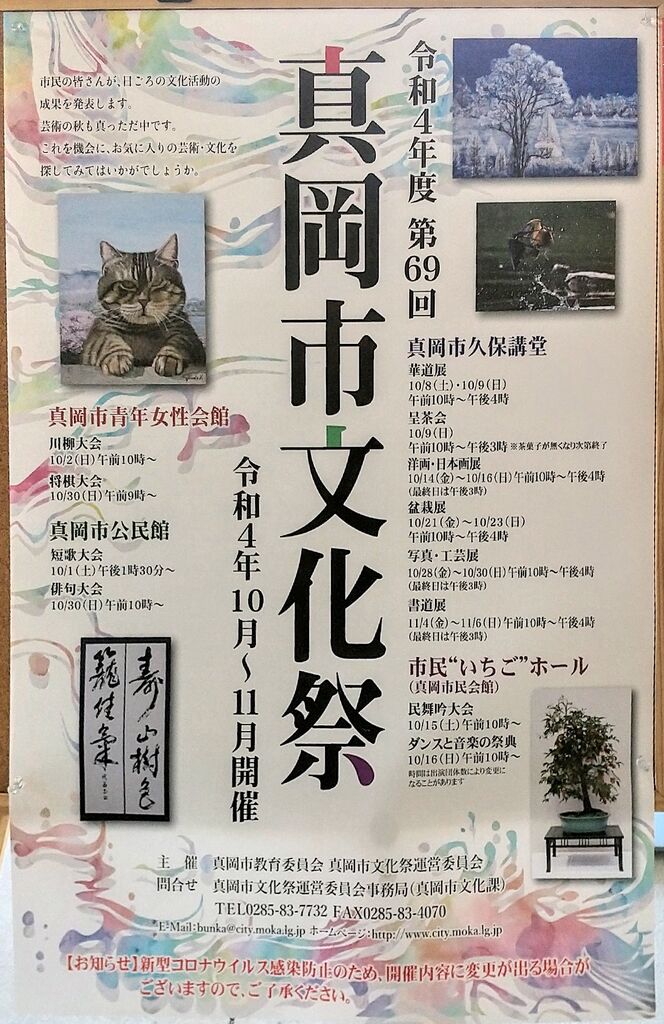 令和4年度 第69回
真岡市文化祭
令和4年10月～11月開催
市民の皆さんが、日ごろの文化活動の
成果を発表します。
芸術の秋も真っただ中です。
これを機会に、お気に入りの芸術・文化を
探してみてはいかがでしょうか。
真岡市青年女性会館
川柳大会
10/2(日)午前10時～
将棋大会
10/30(日)午前9時～
真岡市公民館
短歌大会
10/1(土)午後1時30分～
俳句大会
10/30(日)午前10時～
真岡市久保講堂
華道展
10/8(土)・10/9(日)
午前10時～午後4時
呈茶会
10/9(日)
午前10時～午後3時 ※茶菓子が無くなり次第終了
洋画・日本画展
10/14(金)～10/16(日)午前10時～午後4時
(最終日は午後3時)
盆栽展
10/21(金)～10/23(日)
午前10時～午後4時
写真・工芸展
10/28(金)～10/30(日)午前10時～午後4時
(最終日は午後3時)
書道展
11/4(金)～11/6(日)午前10時～午後4時
(最終日は午後3時)
市民“いちご”ホール
(真岡市民会館)
民舞吟大会
10/15(土)午前10時～
ダンスと音楽の祭典
10/16(日)午前10時～
時間は出演団体数により変更に
なることがあります
寿山樹色
籠佳気
主 催 真岡市教育委員会 真岡市文化祭運営委員会
問合せ 真岡市文化祭運営委員会事務局(真岡市文化課)
TEL0285-83-7732 FAX0285-83-4070
E-Mail:bunka@city.moka.lg.jp ホームページ:http://www.city.moka.lg.jp
【お知らせ】新型コロナウイルス感染防止のため、開催内容に変更が出る場合が
ございますので、ご了承ください。